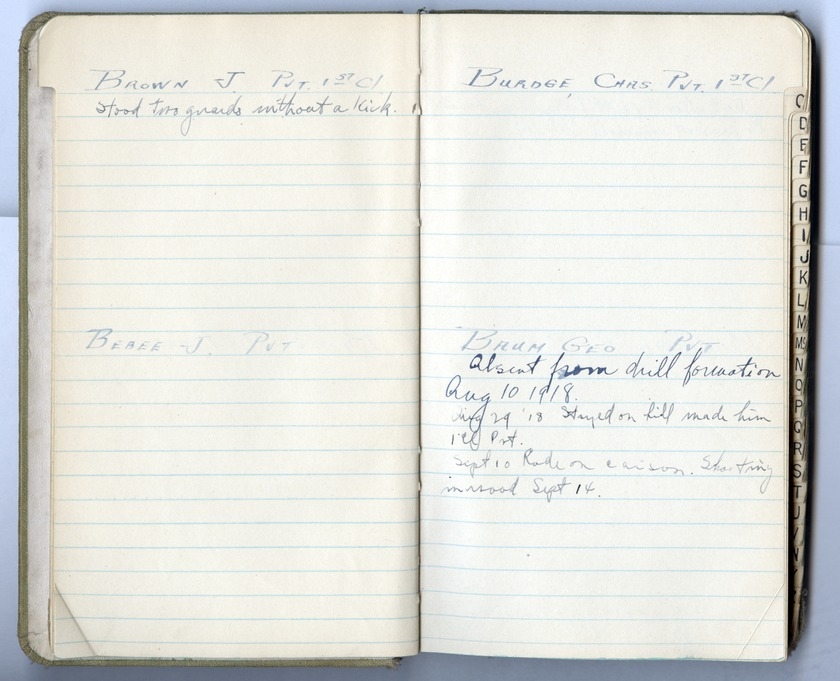 BROWN J. PVT. 1ST Cl
Stood two guards without a kick.
BEBEE J. PVT
BURDGE, CHAS. PVT. 1ST Cl
BAUM GEO PVT
Absent from drill formation
Aug 10 1918.
Aug 29 '18 Stayed on hill made him
1 Cl Pvt.
Sept 10 Rode on caison. Shooting
in wood Sept 14.
C
D
E
F
G
H
I
J
K
L
M
Mc
N
O
P
Q
R
S
T
U
V
W